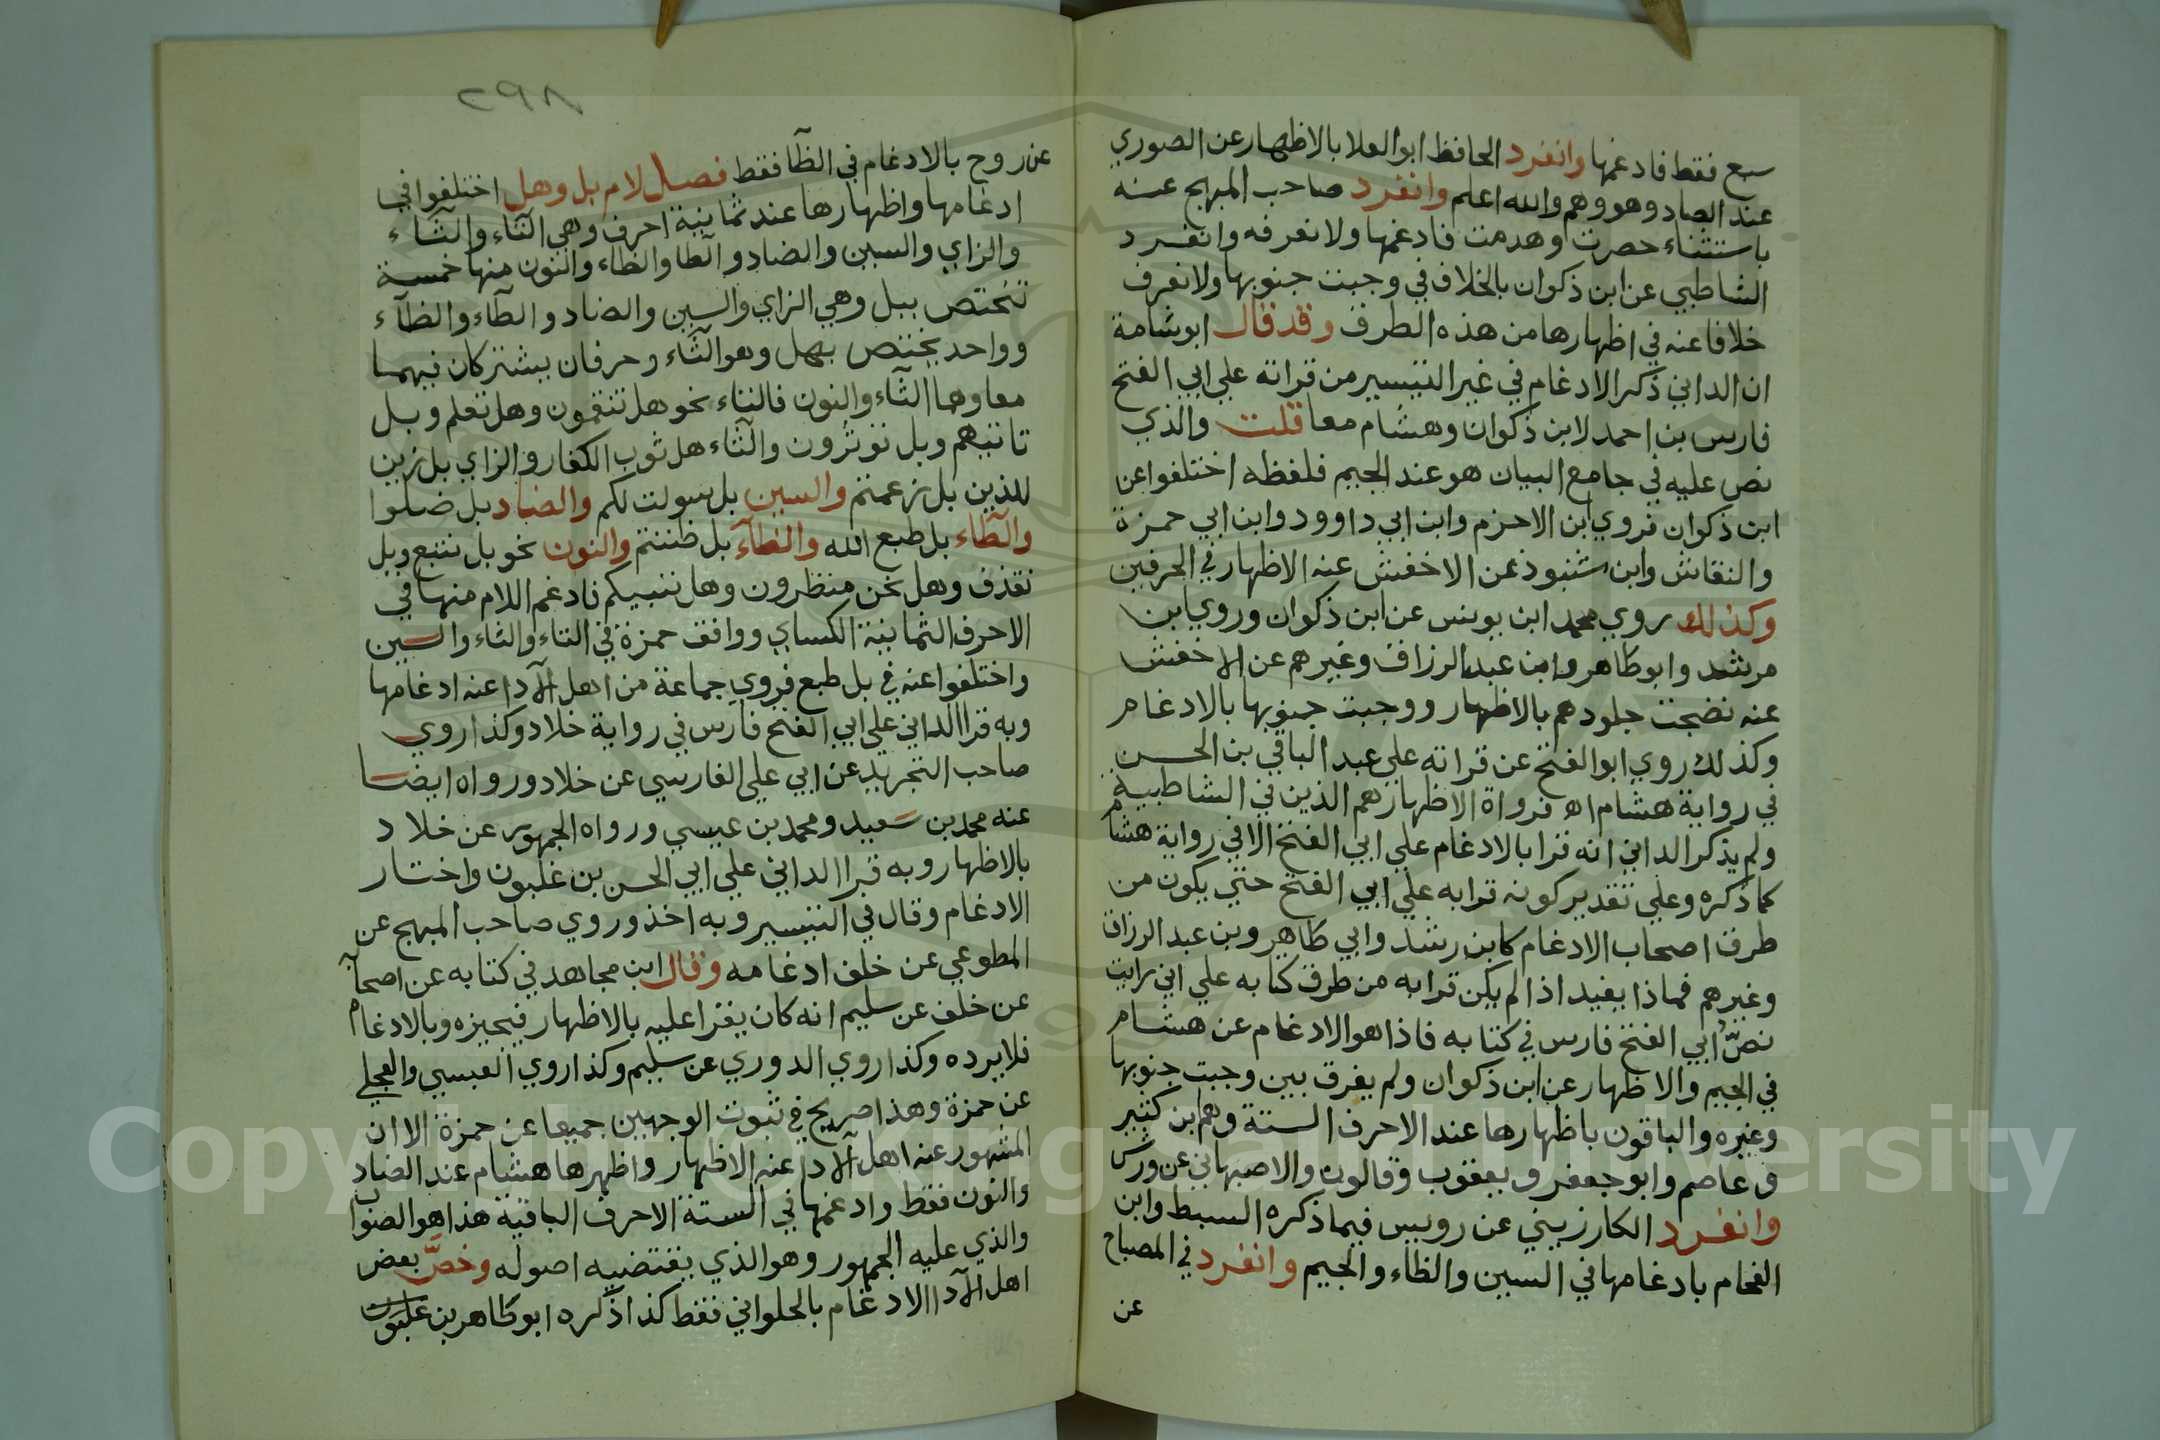 سبع فقط فادغمها وانفرد الحافظ ابو العلا بالاظهار عن الصوري
عند الصاد وهو وهم والله اعلم وانفرد صاحب المبهج عنه
باستثناء حصرت وهدمت فادغمها ولا نعرفه وانفرد
الشاطبي عن ابن ذكوان بالخلاف في وجبت جنوبها ولا نعرف
خلافا عنه في اظهارها من هذه الطرف وقد قال ابو شامة
ان الداني ذكر الادغام في غير التيسير من قراته علي ابي الفتح
فارس بن احمد لابن ذكوان وهشام معا قلت والذي
نص عليه في جامع البيان هو عند الجيم فلفظه اختلفوا عن
ابن ذكوان فروي ابن الاحزم وابن ابي داوود وابن ابي حمزة
والنقاش وابن شنبوذ عن الاخفش عنه الاظهار في الحرفين
وكذلك روي محمد ابن يونس عن ابن ذكوان وروي ابن
مرشد وابو طاهر وابن عبد الرزاق وغيرهم عن الاخفش
عنه نضجت جلودهم بالاظهار ووجبت جنوبها بالادغام
وكذلك روي ابو الفتح عن قراته علي عبد الباقي بن الحسن
في رواية هشام اه فرواة الاظهار هم الذين في الشاطبية
ولم يذكر الداني انه قرا بالادغام علي ابي الفتح الا في رواية هشام
كما ذكره وعلي تقدير كونه قرا به علي ابي الفتح حتي يكون من
طرق اصحاب الادغام كابن رشد وابي طاهر وبن عبد الرزاق
وغيرهم فماذا يفيد اذا لم يكن قرا به من طرق كتابه علي اني رايت
نصّ ابي الفتح فارس في كتابه فاذا هو الادغام عن هشام
في الجيم والاظهار عن ابن ذكوان ولم يفرق بين وجبت جنوبها
وغيره والباقون باظهارها عند الاحرف الستة وهم ابن كثير
وعاصم وابو جعفر ويعقوب وقالون والاصبهاني عن ورش
وانفرد الكارزيني عن رويس فيما ذكره السبط وابن
الفحام بادغامها في السين والظاء والجيم وانفرد في المصباح
عن
٨٩٢
عن روح بالادغام في الظا فقط فصل لام بل وهل اختلفوا في
ادغامها واظهارها عند ثمانية احرف وهي التاء والثاء
والزاي والسين والضاد والطا والظاء والنون منها خمسة
تختص ببل وهي الزاي والسين والضاد والطاء والظاء
وواحد يختص بهل وهو الثاء وحرفان يشتركان فيهما
معا وهما التاء والنون فالتاء نحو هل تنقمون وهل تعلم وبل
تاتيهم وبل تؤثرون والثاء هل ثوب الكفار والزاي بل زين
للذين بل زعمتم والسين بل سولت لكم والضاد بل ضلوا
والطاء بل طبع الله والظاء بل ظننتم والنون نحو بل نتبع وبل
نقذف وهل نحن منظرون وهل ننبيكم فادغم اللام منها في
الاحرف الثمانية الكساي ووافق حمزة في التاء والثاء والسين
واختلفوا عنه في بل طبع فروي جماعة من اهل الآدا عنه ادغامها
وبه قرا الداني علي ابي الفتح فارس في رواية خلاد وكذا روي
صاحب التجريد عن ابي علي الفارسي عن خلاد ورواه ايضا
عنه محمد بن سعيد ومحمد بن عيسي ورواه الجمهور عن خلاد
بالاظهار وبه قرا الداني علي ابي الحسن بن غلبون واختار
الادغام وقال في التيسير وبه اخذ وروي صاحب المبهج عن
المطوعي عن خلف ادغامه وقال ابن مجاهد في كتابه عن اصحا
عن خلف عن سليم انه كان يقرا عليه بالاظهار فيجيزه وبالادغام
فلا يرده وكذا روي الدوري عن سليم وكذا روي العبسي والعجلي
عن حمزة وهذا صريح في ثبوت الوجهين جميعا عن حمزة الا ان
المشهور عنه اهل الآدا عنه الاظهار واظهرها هشام عند الضاد
والنون فقط وادغمها في الستة الاحرف الباقية هذا هو الصواب
والذي عليه الجمهور وهو الذي يقتضيه اصوله وخصّ بعض
اهل الآدا الادغام بالحلواني فقط كذا ذكره ابو طاهر بن غلبون